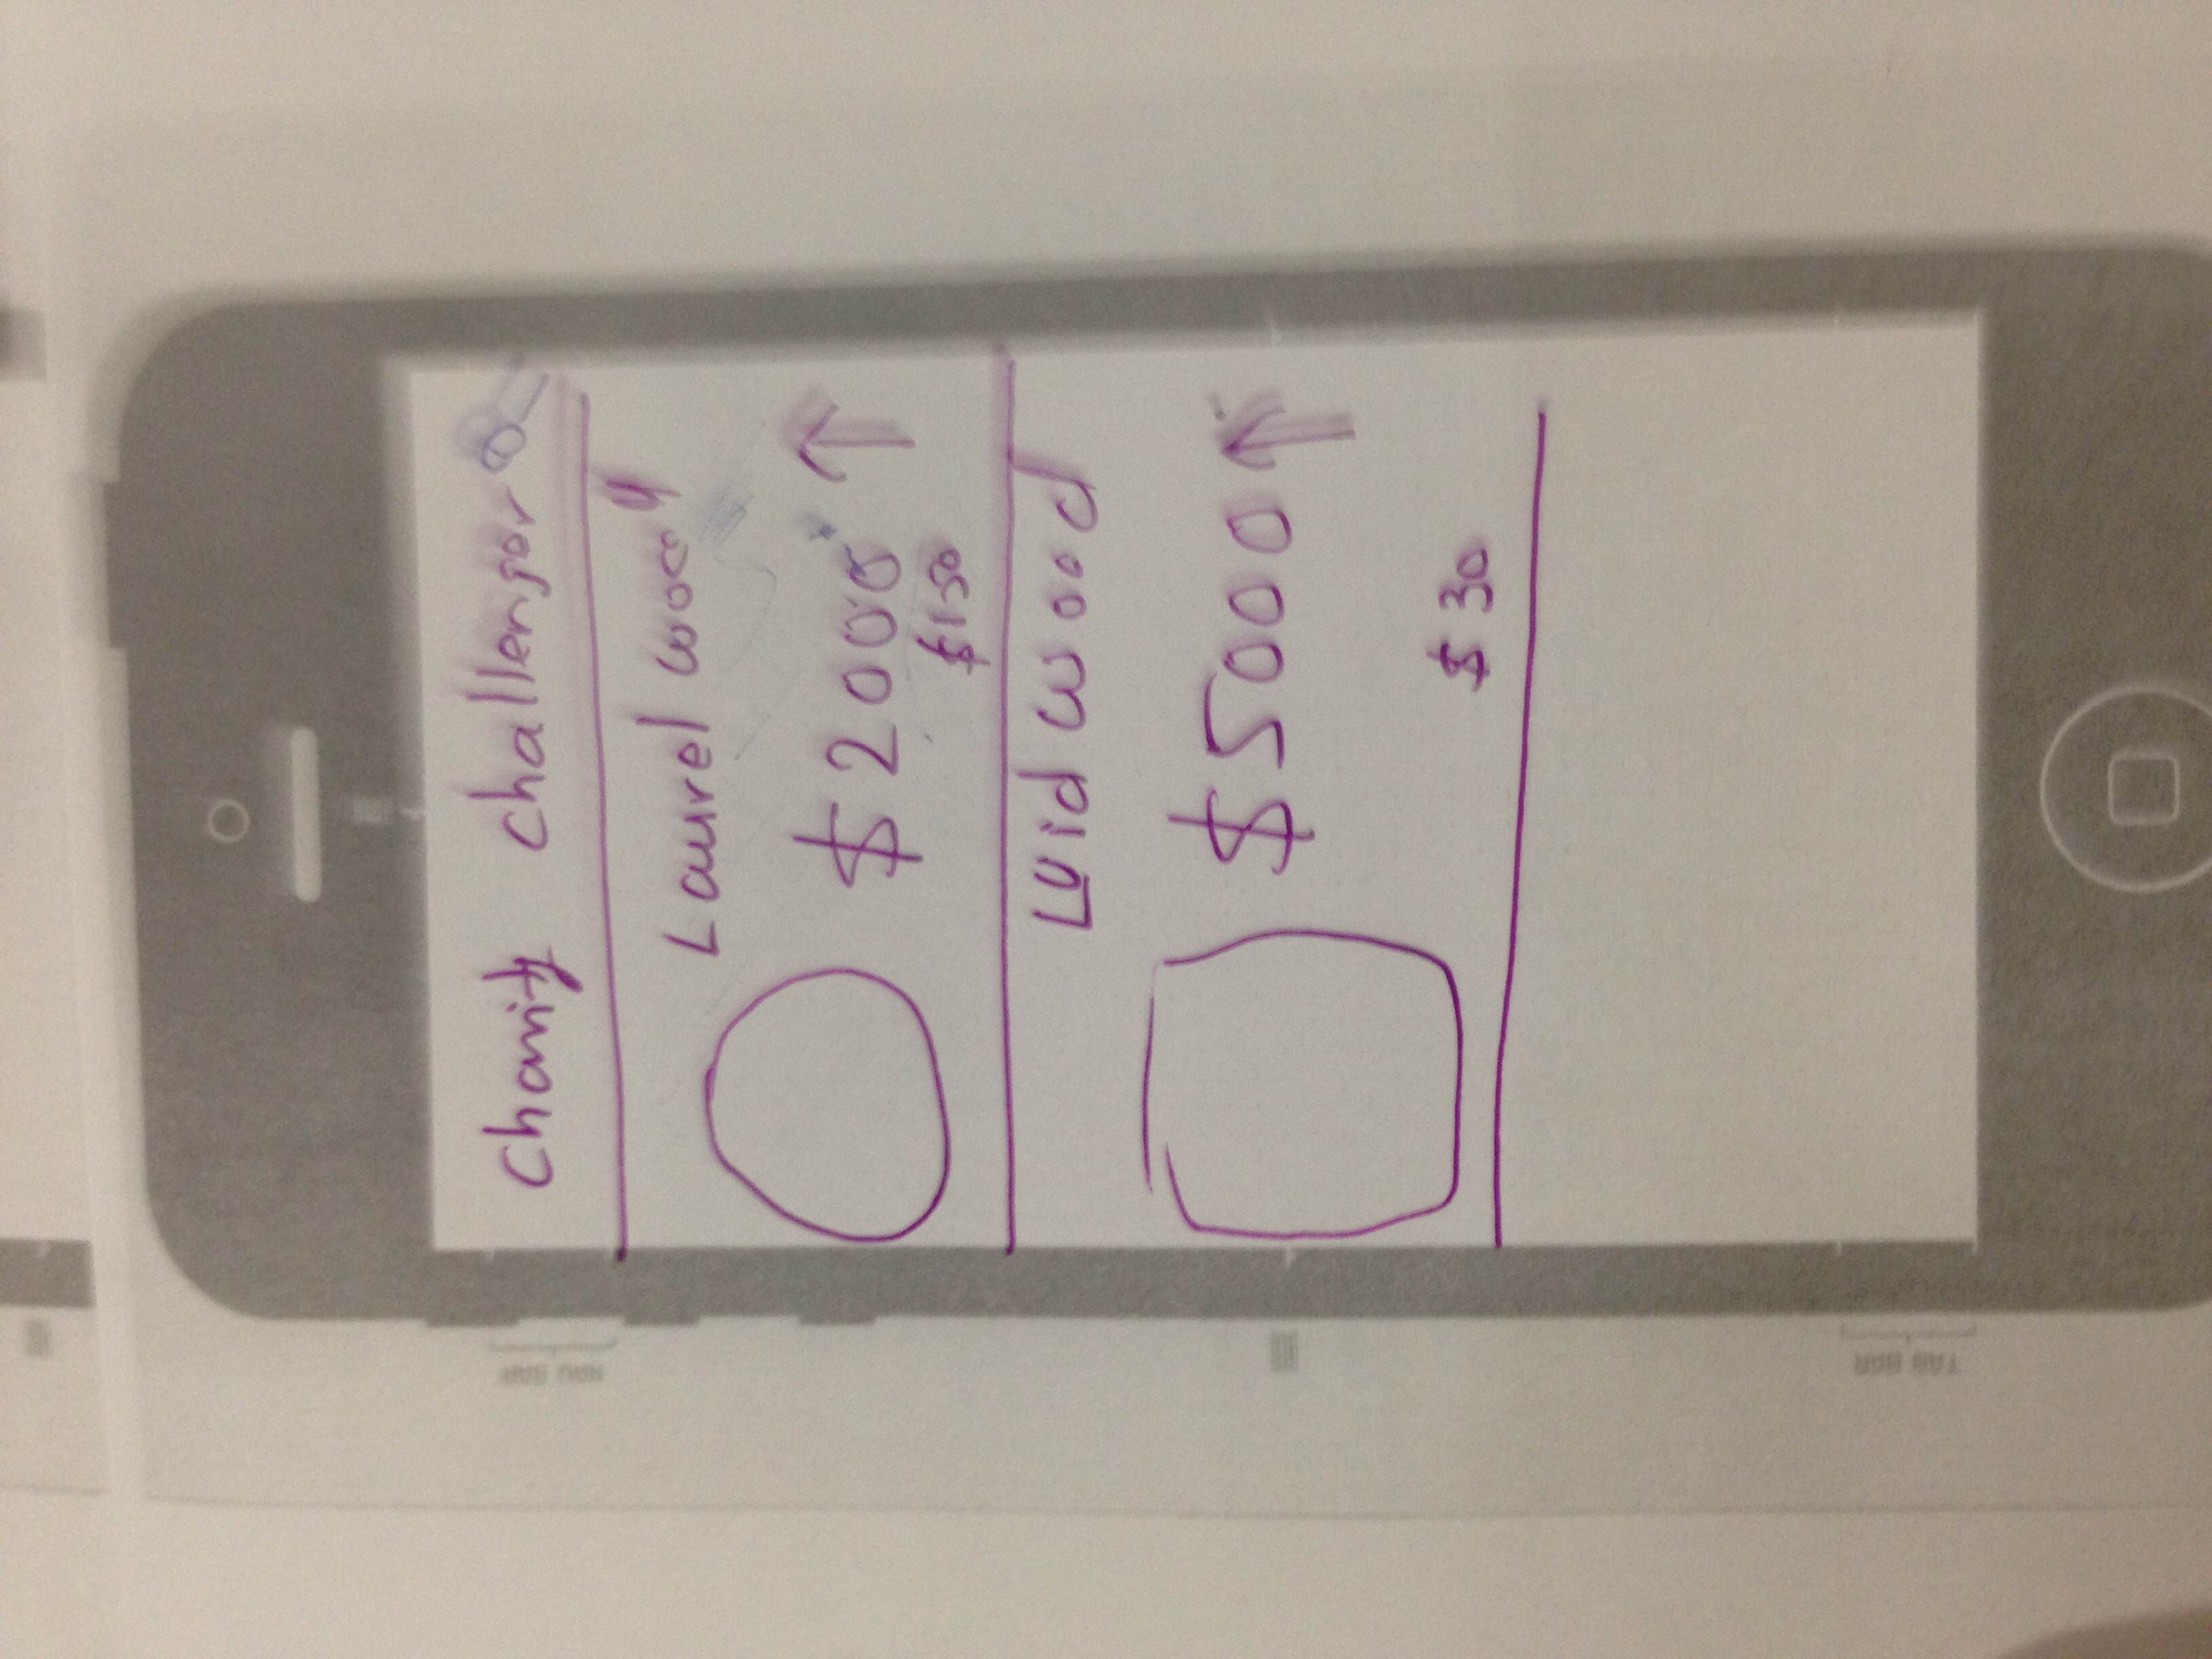 Charity Challenger
Laurel wood
$2000
$150
Luid wood
$5000
$30
NAV BAR
TAB BAR